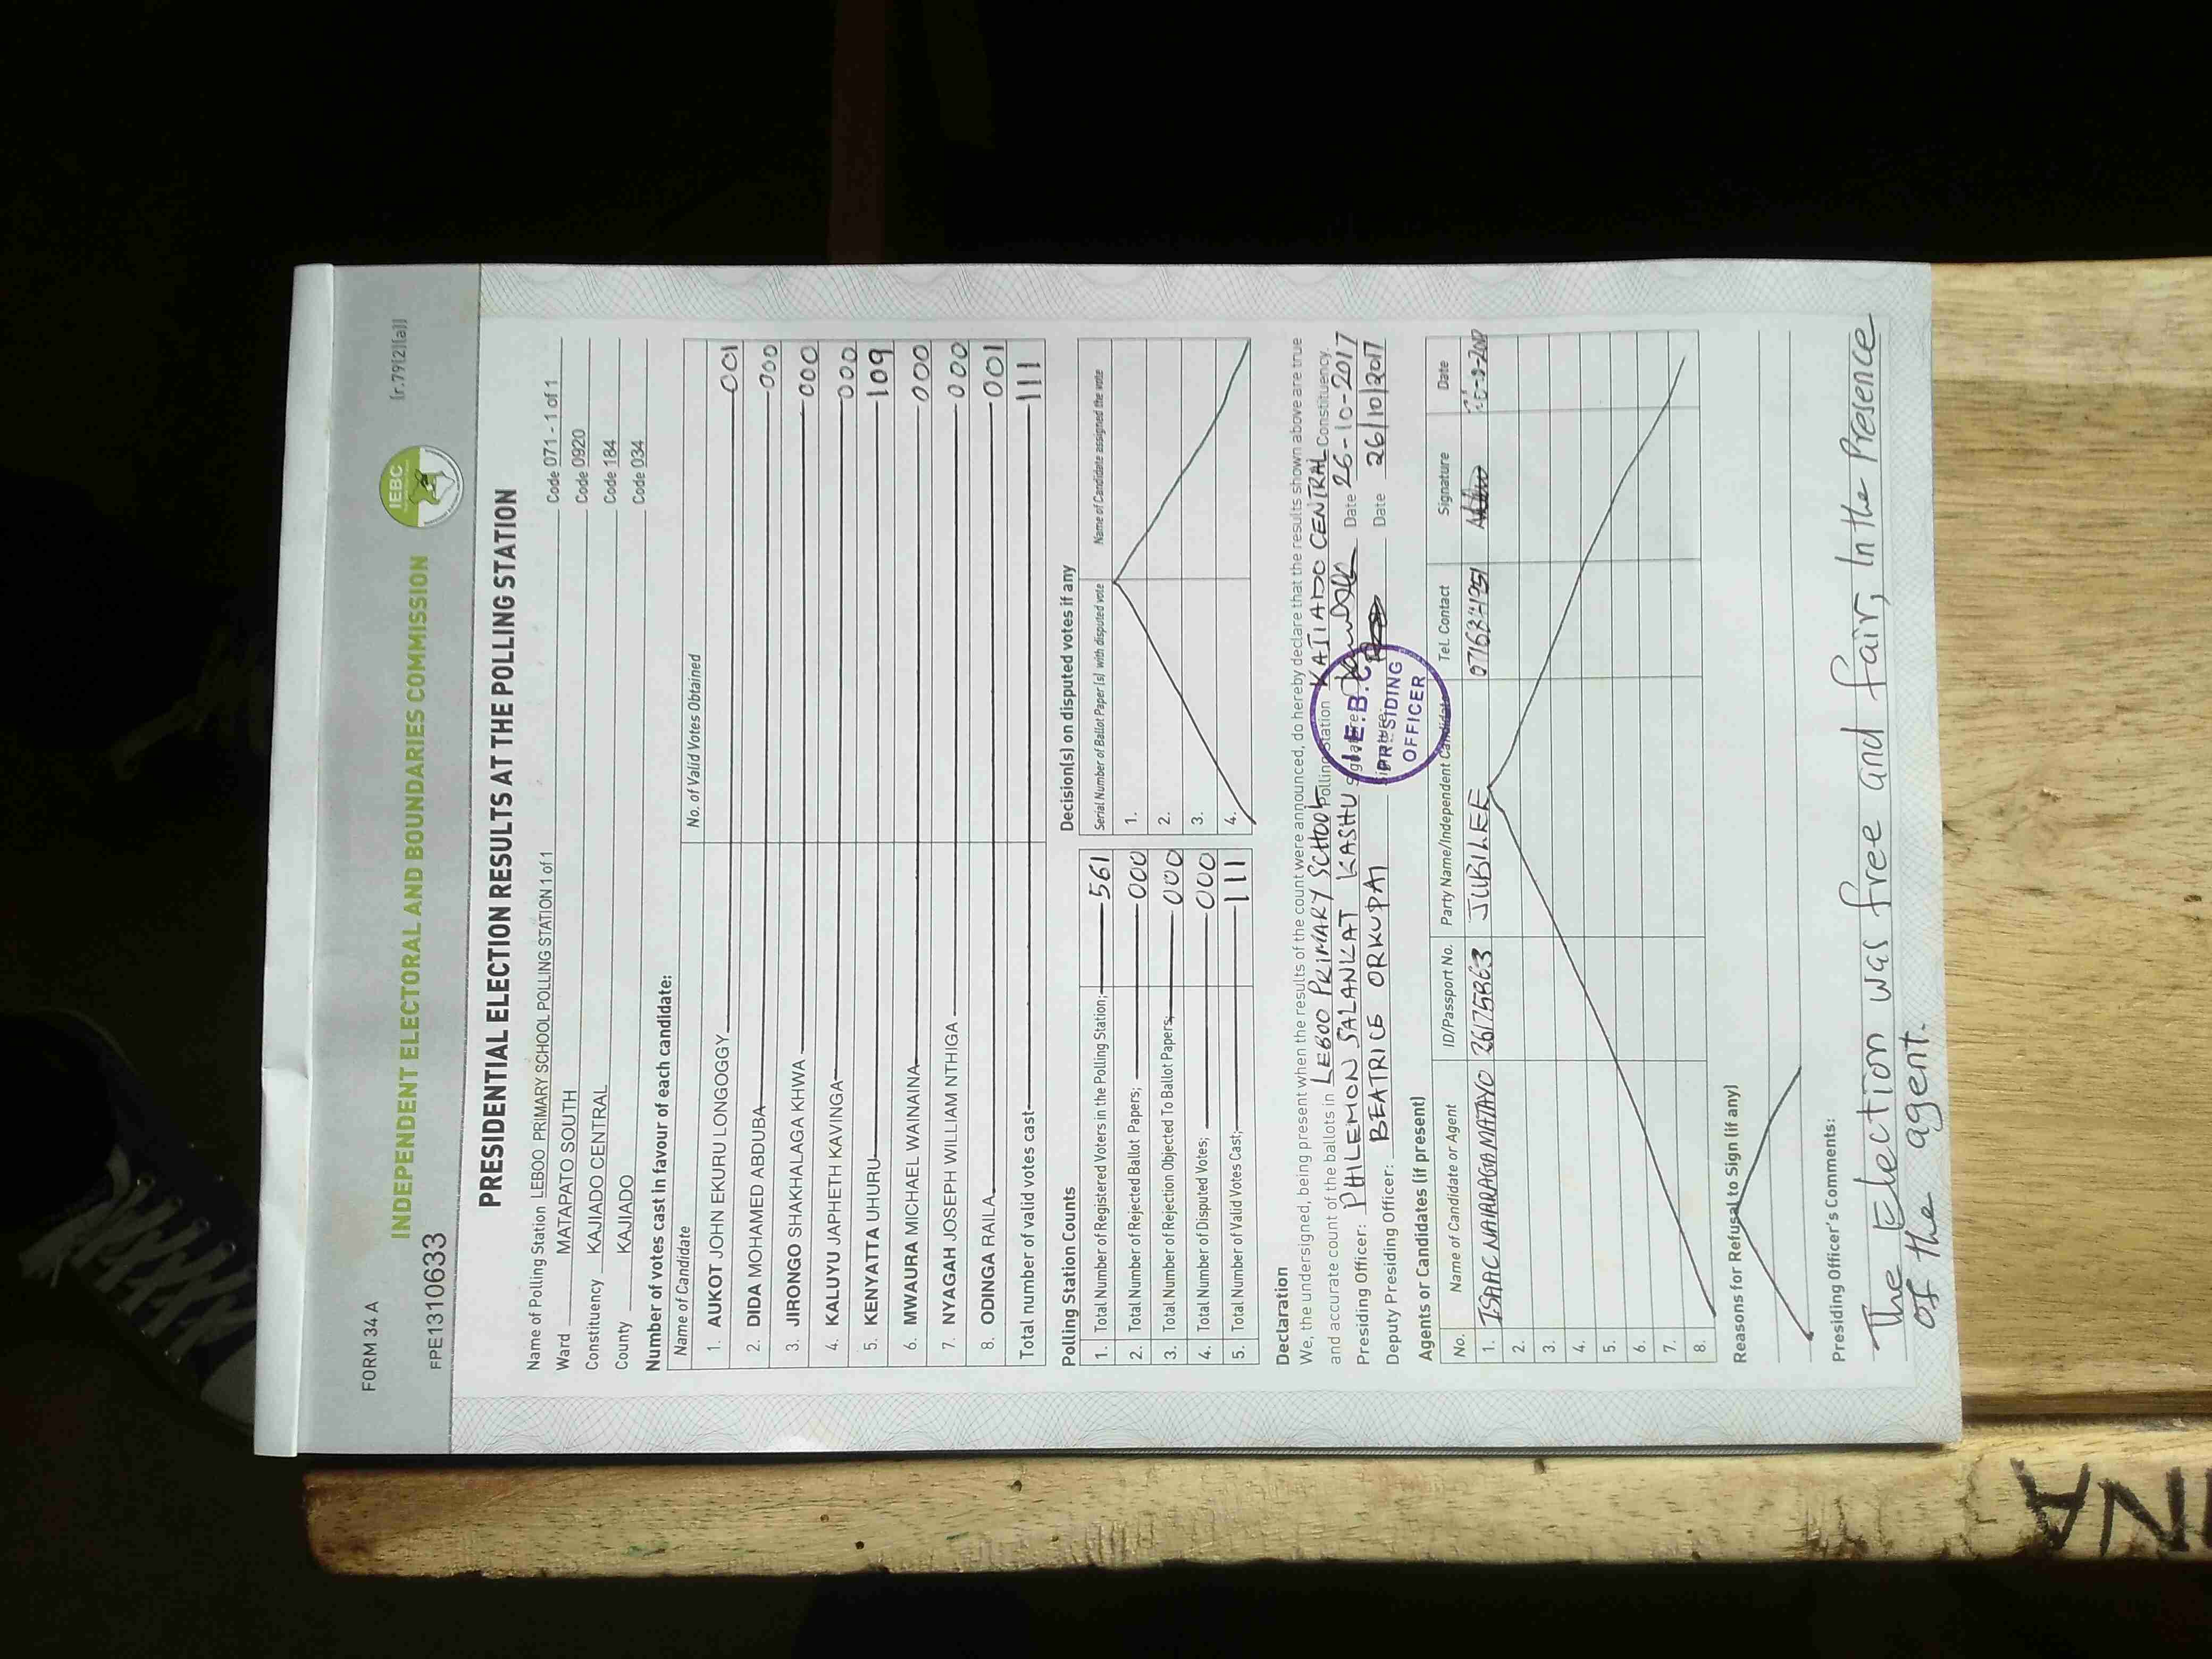 FORM 34 A
[r.79(2)(a)]
INDEPENDENT ELECTORAL AND BOUNDARIES COMMISSION
IEBC
FPE1310633
PRESIDENTIAL ELECTION RESULTS AT THE POLLING STATION
Name of Polling Station LEBOO PRIMARY SCHOOL POLLING STATION 1 of 1 Code 071 - 1 of 1
Ward MATAPATO SOUTH Code 0920
Constituency KAJIADO CENTRAL Code 184
County KAJIADO Code 034
Number of votes cast in favour of each candidate:
Name of Candidate No. of Valid Votes Obtained
1. AUKOT JOHN EKURU LONGOGGY 001
2. DIDA MOHAMED ABDUBA 000
3. JIRONGO SHAKHALAGA KHWA 000
4. KALUYU JAPHETH KAVINGA 000
5. KENYATTA UHURU 109
6. MWAURA MICHAEL WAINAINA 000
7. NYAGAH JOSEPH WILLIAM NTHIGA 000
8. ODINGA RAILA 001
Total number of valid votes cast 111
Polling Station Counts
1. Total Number of Registered Voters in the Polling Station; 561
2. Total Number of Rejected Ballot Papers; 000
3. Total Number of Rejection Objected To Ballot Papers; 000
4. Total Number of Disputed Votes; 000
5. Total Number of Valid Votes Cast; 111
Decision(s) on disputed votes if any
Serial Number of Ballot Paper (s) with disputed vote Name of Candidate assigned the vote
1.
2.
3.
4.
Declaration
We, the undersigned, being present when the results of the count were announced, do hereby declare that the results shown above are true
and accurate count of the ballots in LEBOO PRIMARY SCHOOL Polling Station KAJIADO CENTRAL Constituency.
Presiding Officer: PHILEMON SALANKAT KASHU Signature Date 26-10-2017
Deputy Presiding Officer: BEATRICE ORKUPAI Signature: Date 26/10/2017
I.E.B.C
PRESIDING
OFFICER
Agents or Candidates (if present)
No. Name of Candidate or Agent ID/Passport No. Party Name/Independent Candidate Tel. Contact Signature Date
1. ISAAC 26175863 JUBILEE
2.
3.
4.
5.
6.
7.
8.
Reasons for Refusal to Sign (if any)
Presiding Officer's Comments:
The Election was free and fair, In the Presence
of the agent.
INA